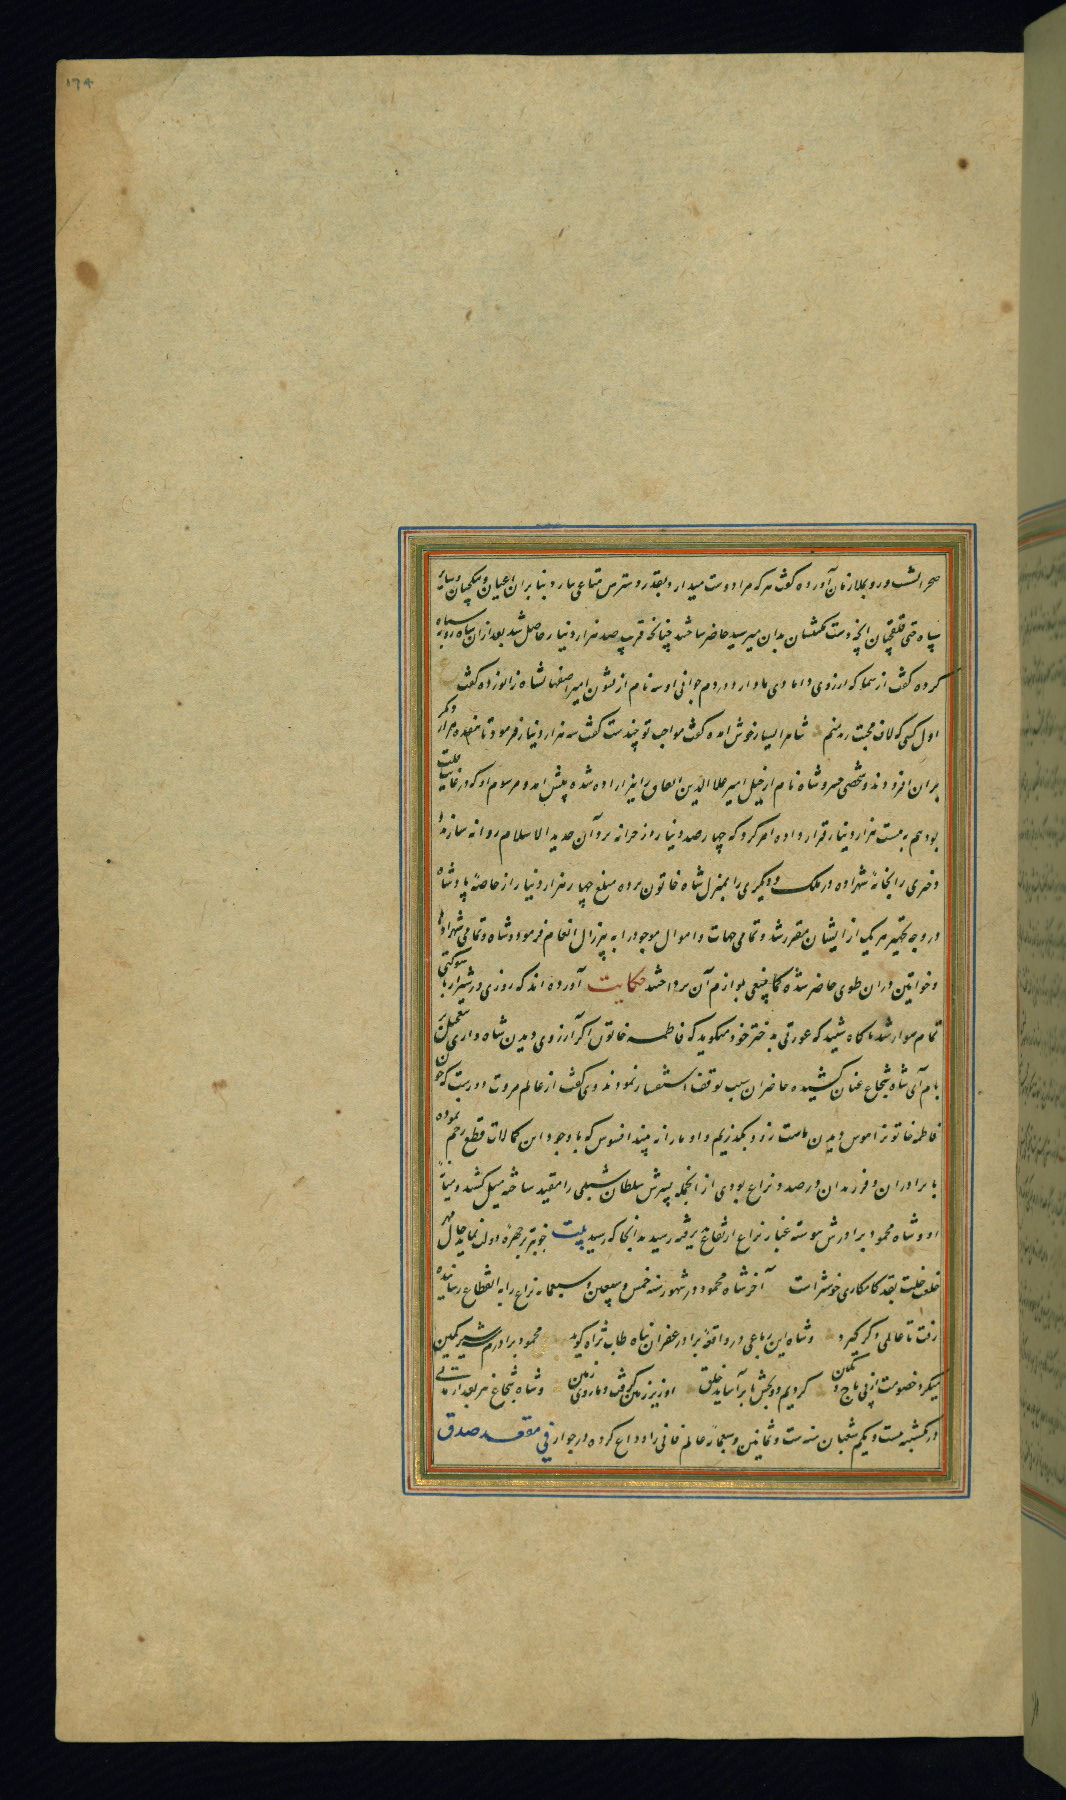 ۱۳۴
صحرا لشکر و رو بملازمان آورده گفت هر که مرا دوست میدارد بقدر دسترس متاعی بیارد بنا بر ان اعیان و
سپاه حتی قلقچیان آنچه دست مکنتشان بدان میرسید حاضر ساختند چنانچه قریب صد هزار دینار حاصل شد بعد ازان شاه رو به سپاه
کرده گفت از شما که ارزوی دامادی ما دارد در دم جوانی اوسه نام از قشون امیر اصفهانشاه زانو زده گفت
اول کسی که لاف محبت زند منم شاه را بسیار خوش امده گفت مواجب تو چندست گفت سه هزار دینار فرمود تا هفده هزار دیگر
بران افزودند و شخصی خسرو شاه نام از خیل امیر علاالدین ایناق را نیز اراده شده پیش امد و مرسوم او که در غایت قلت
بود هم به بیست هزار دینار قرار داده امر کرد که چهار صد دینار از خزانه برد آن حدید الاسلام روانه سازند و
دختری را بخانه شهزاده در ملک و دیگری را بمنزل شاه خاتون برده مبلغ چهار هزار دینار از خاصه پادشاه
در وجه تجهیز هر یک از ایشان مقرر شد و تمامی جهات و اموال موجود را به پیرزال انعام فرمود و شاه و تمامی شهزادها
و خواتین دران طوی حاضر شده کما ینبغی بلوازم آن پرداختند حکایت آورده اند که روزی در شیراز با شوکتی
تمام سوار شد ناگاه شنید که عورتی به دختر خود میگوید که فاطمه خاتون اگر آرزوی دیدن شاه داری
بام آی شاه شجاع عنان کشیده حاضران سبب توقف استفسار نمودند وی گفت از عالم مروت دورست که چون
فاطمه خاتونرا هوس دیدن ماست زود بگذریم و او ما را نه بیند افسوس که با وجود این کمالات قطع رحم نموده
با برادران و فرزندان در صدد نزاع بودی از انجمله پسرش سلطان شبلی را مقید ساخته میل کشید و میان
او و شاه محمود برادرش پیوسته غبار نزاع ارتفاع پذیرفته رسید بدانجا که رسید بیت خوبتر در چهره دولت نماید خال مهر
خلعت بقد کامکاری خوشتر است آخر شاه محمود در شهور سنه خمس و سبعین و سبعمایه نزاع را به انقطاع رسانیده
رفت تا عالمی دگر گیرد و شاه این رباعی در واقعه برادر غفران پناه طاب ثراه گوید محمود برادرم شیر کمین
میکرد خصومت از پی تاج و نگین کردیم دو بخش تا بر آساید خلق او زیر زمین گرفت و ما روی زمین و شاه شجاع نیز بعد از
در یکشنبه بیست و یکم شعبان سنه ست و ثمانین و سبعمایه عالم فانی را وداع کرده در جوار فی مقعد صدق